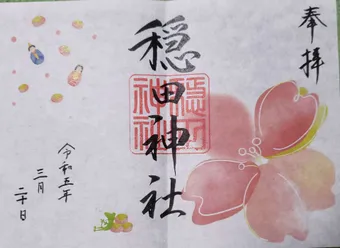 奉拝
穏田神社
穏田
神社
令和五年
三月
二十日